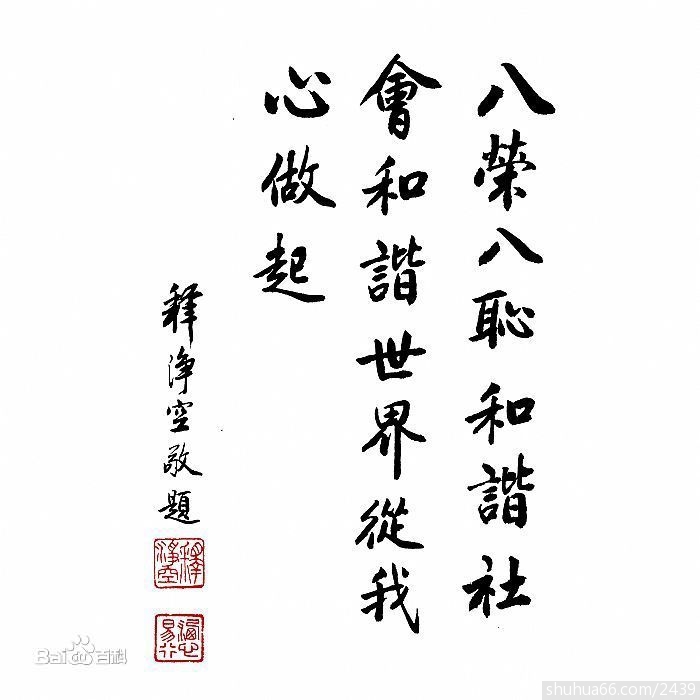 八榮八恥和諧社
會和諧世界從我
心做起
釋淨空敬題
釋淨空
Bai百科
shuhua66.com/2439